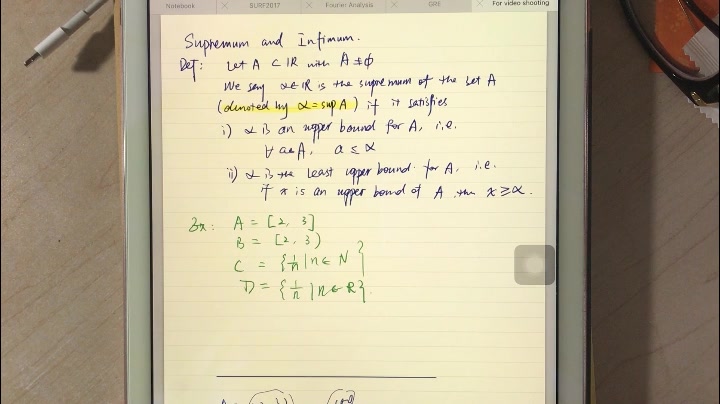 Notebook × SURF2017 × Fourier Analysis × GRE × For video shooting
Supremum and Infimum.
Def: Let A ⊂ IR with A ≠ ϕ
We say α ∈ IR is the supremum of the set A
(denoted by α = sup A) if it satisfies
i) α is an upper bound for A, i.e.
∀ a∈A, a ≤ α
ii) α is the least upper bound for A, i.e.
if x is an upper bound of A then x ≥ α.
Ex: A = [2, 3]
B = [2, 3)
C = {1/n | n ∈ N}
D = {1/n | n ∈ R}.